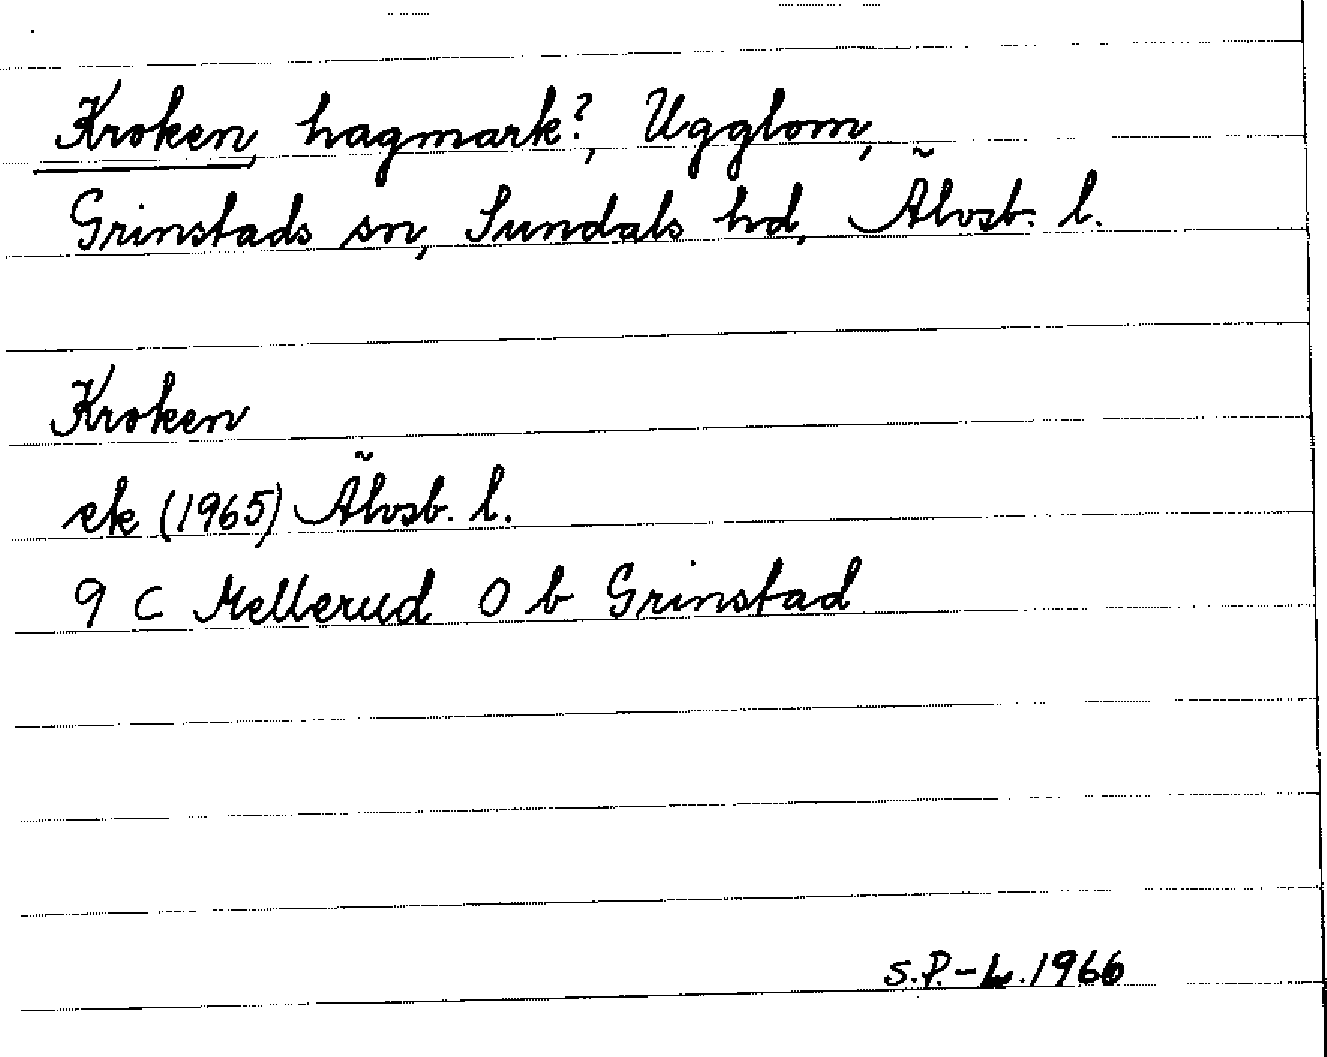 Kroken, hagmark?, Ugglom,
Grinstads sn, Sundals hd, Älvsb. l.
Kroken
ek (1965) Älvsb. l.
9 C Mellerud O b Grinstad
S.P.-L. 1966